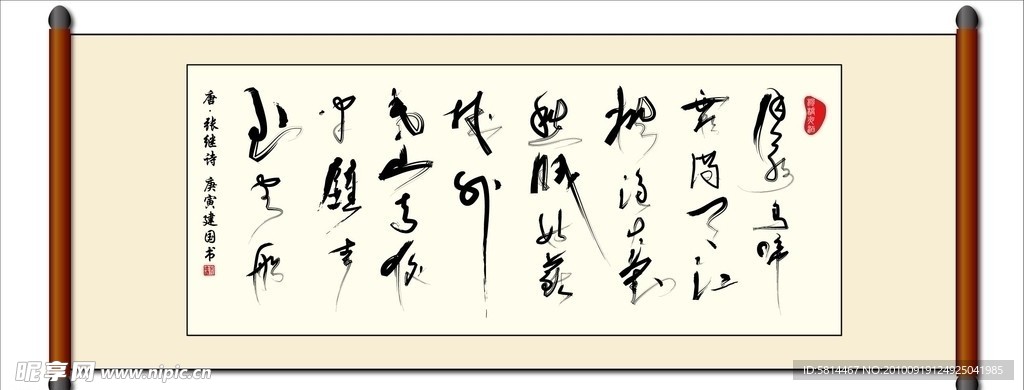 月落乌啼
霜满天江
枫渔火对
愁眠姑蘇
城外
寒山寺夜
半鐘声
到客船
唐·张继诗 庚寅建国书
昵享网 www.nipic.cn
ID:5814467 NO:20100919124925041985